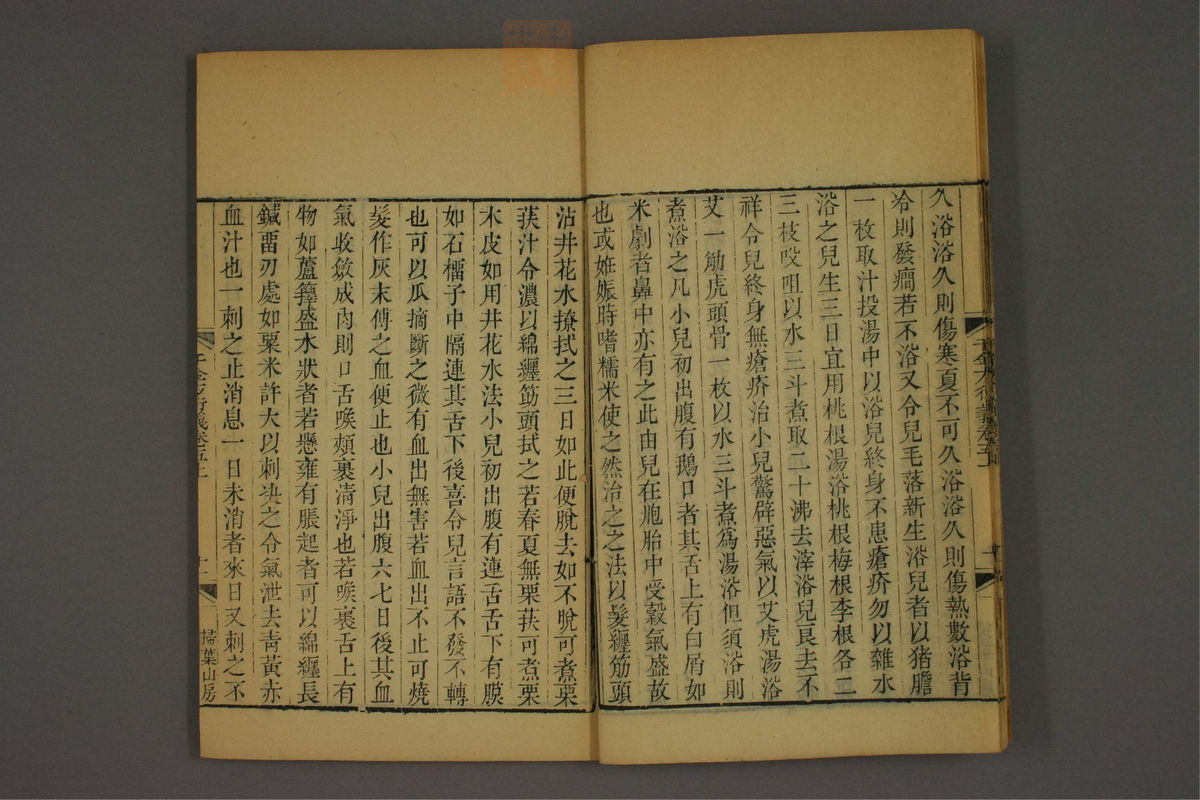 久浴浴久則傷寒夏不可久浴浴久則傷熱數浴背
冷則發癎若不浴又令兒毛落新生浴兒者以猪膽
一枚取汁投湯中以浴兒終身不患瘡疥勿以雜水
浴之兒生三日宜用桃根湯浴桃根梅根李根各二
三枝㕮咀以水三斗煮取二十沸去滓浴兒良去不
祥令兒終身無瘡疥治小兒驚辟惡氣以艾虎湯浴
艾一觔虎頭骨一枚以水三斗煮爲湯浴但須浴則
煮浴之凡小兒初出腹有鵝口者其舌上有白屑如
米劇者鼻中亦有之此由兒在胞胎中受穀氣盛故
也或姙娠時嗜糯米使之然治之之法以髮纏筋頭
沾井花水撩拭之三日如此便脫去如不脫可煮栗
莢汁令濃以綿纏筯頭拭之若春夏無栗莢可煮栗
木皮如用井花水法小兒初出腹有連舌舌下有膜
如石橊子中隔連其舌下後喜令兒言語不發不轉
也可以爪摘斷之微有血出無害若血出不止可燒
髮作灰末傅之血便止也小兒出腹六七日後其血
氣收斂成肉則口舌喉頰裏清淨也若喉裏舌上有
物如蘆籜盛水狀者若懸雍有脹起者可以綿纏長
鍼留刃處如粟米許大以刺决之令氣泄去青黃赤
血汁也一刺之止消息一日未消者來日又刺之不
千金方衍義卷五上
掃葉山房